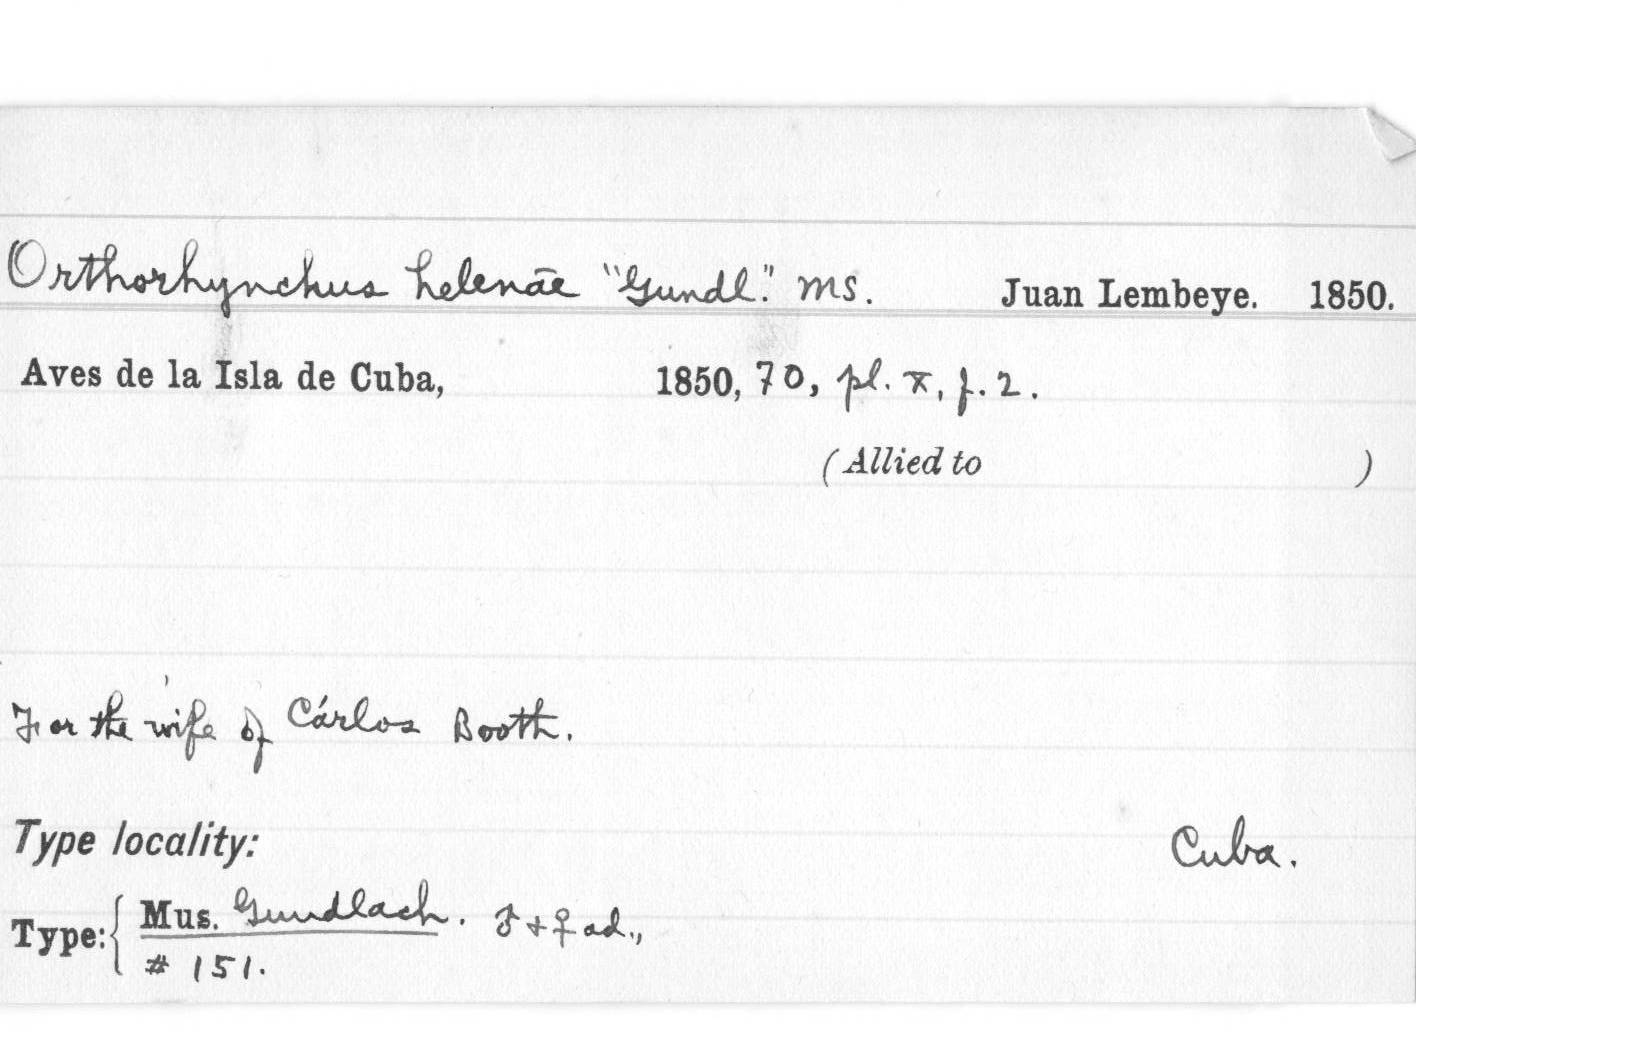 Orthorhynchus helenae "Gundl." ms. Juan Lembeye. 1850.
Aves de la Isla de Cuba, 1850, 70, pl. X, f. 2.
(Allied to )
For the wife of Cárlos Booth.
Type locality: Cuba.
Type: { Mus. Gundlach. ♂ + ♀ ad.,
# 151.